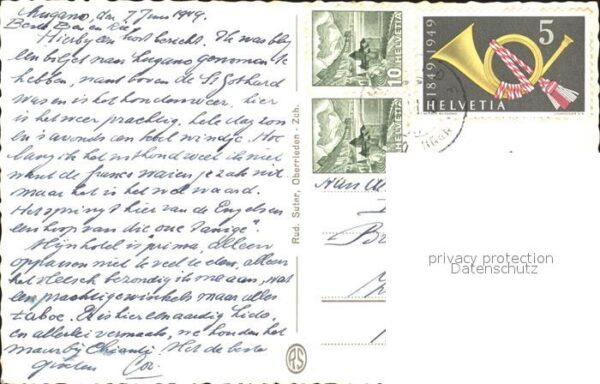 Lugano, den 7 Juni 1949.
Beste Ben en
Hierbij een kort bericht. Ik was blij
een biljet naar Lugano genomen te
hebben, want boven de St. Gothard
was en is het hondenweer, hier
is het weer prachtig, hele dag zon
en 's avonds een koel windje. Hoe
lang ik het uithoud weet ik niet
want de francs waaien je zak uit
maar het is het wel waard.
Het springt hier van de Engelsen
een hoop van die oude
Mijn hotel is prima, alleen
oppassen niet te veel te eten, alleen
het vleesch bezondig ik me aan, wat
een prachtige winkels maar alles
taboe. Er is hier een aardig Lido,
en allerlei vermaak, we houden het
maar bij Chianti. Met de beste
groeten Cor.
Rud. Suter, Oberrieden - Zch.
RS
10 HELVETIA
10 HELVETIA
1849 1949
5
HELVETIA
privacy protection
Datenschutz